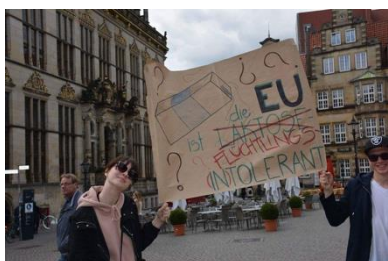 ? ? ?
die EU
ist LAKTOSE
FLÜCHTLINGS-
? INTOLERANT